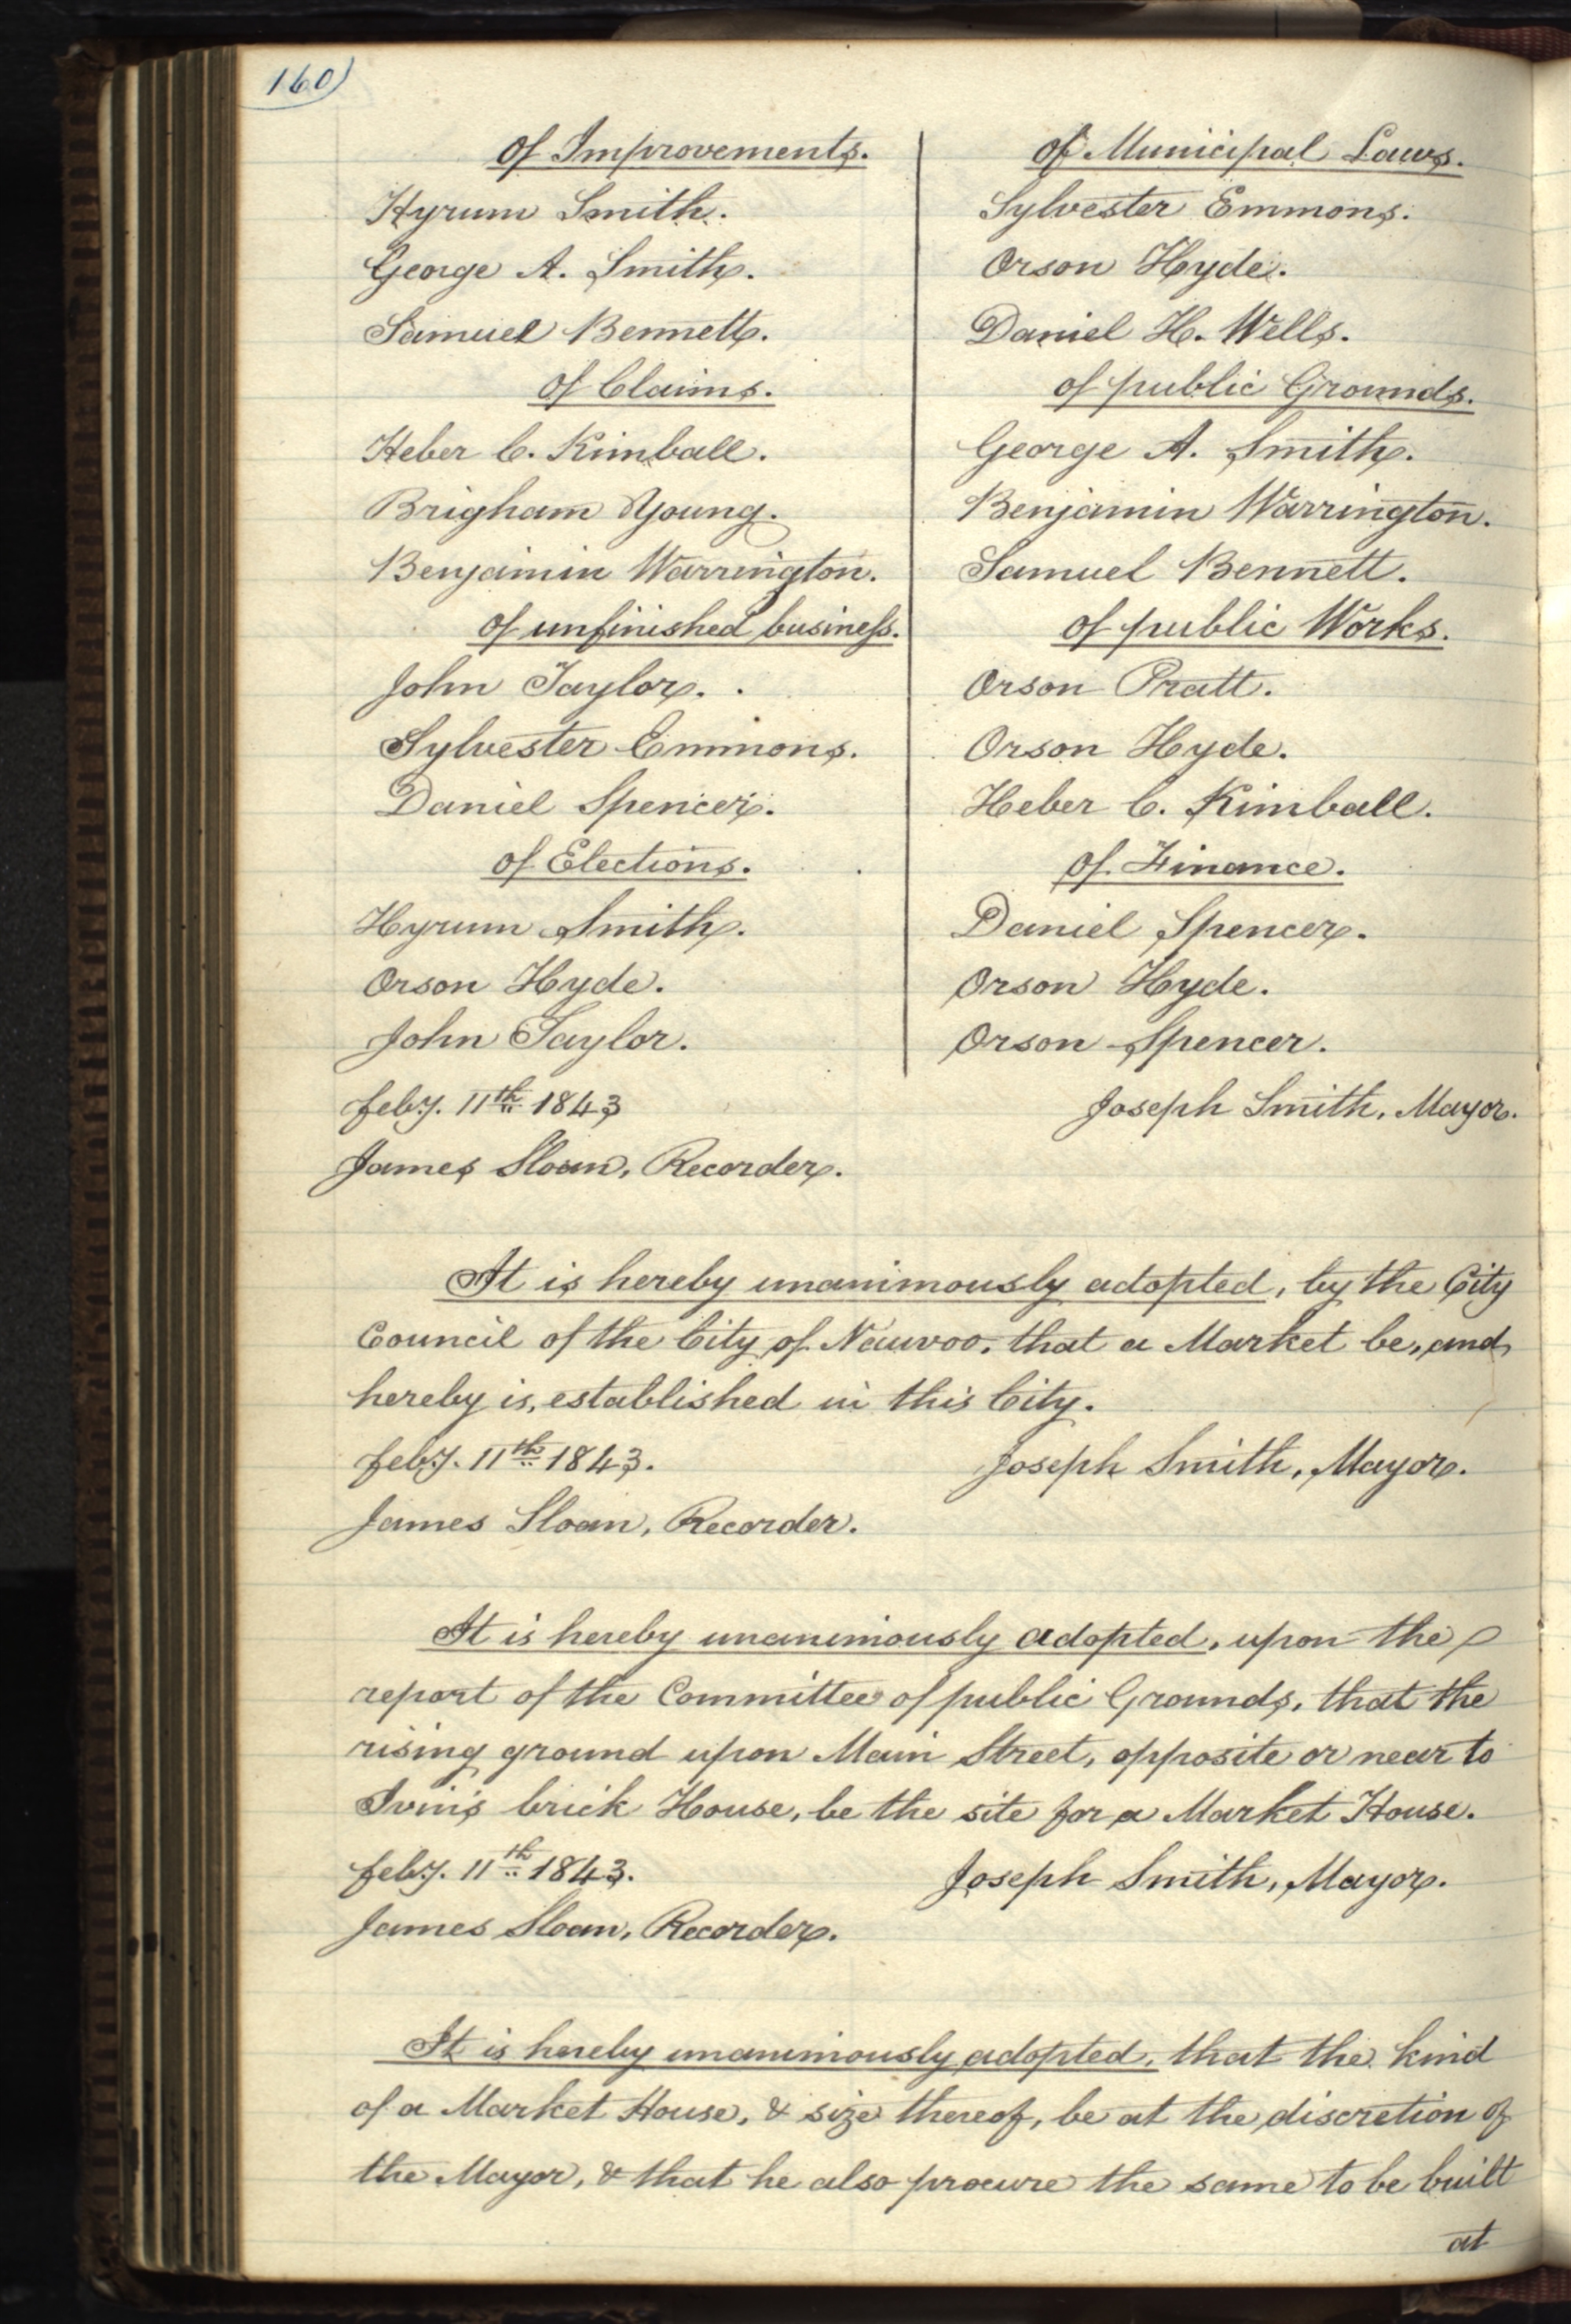 160)
of Improvements.
Hyrum Smith.
George A. Smith.
Samuel Bennett.
of Claims.
Heber C. Kimball.
Brigham Young.
Benjamin Warrington.
of unfinished business.
John Taylor.
Sylvester Emmons.
Daniel Spencer.
of Elections.
Hyrum Smith.
Orson Hyde.
John Taylor.
of Municipal Laws.
Sylvester Emmons.
Orson Hyde.
Daniel H. Wells.
of public Grounds.
George A. Smith.
Benjamin Warrington.
Samuel Bennett.
of public Works.
Orson Pratt.
Orson Hyde.
Heber C. Kimball.
of Finance.
Daniel Spencer.
Orson Hyde.
Orson Spencer.
feby. 11th 1843 Joseph Smith, Mayor.
James Sloan, Recorder.
It is hereby unanimously adopted, by the City
Council of the City of Nauvoo, that a Market be, and
hereby is, established in this City.
feby. 11th 1843. Joseph Smith, Mayor.
James Sloan, Recorder.
It is hereby unanimously adopted, upon the
report of the Committee of public Grounds, that the
rising ground upon Main Street, opposite or near to
Ivin's brick House, be the site for a Market House.
feby. 11th 1843. Joseph Smith, Mayor.
James Sloan, Recorder.
It is hereby unanimously adopted, that the kind
of a Market House, & size thereof, be at the discretion of
the Mayor, & that he also procure the same to be built
at